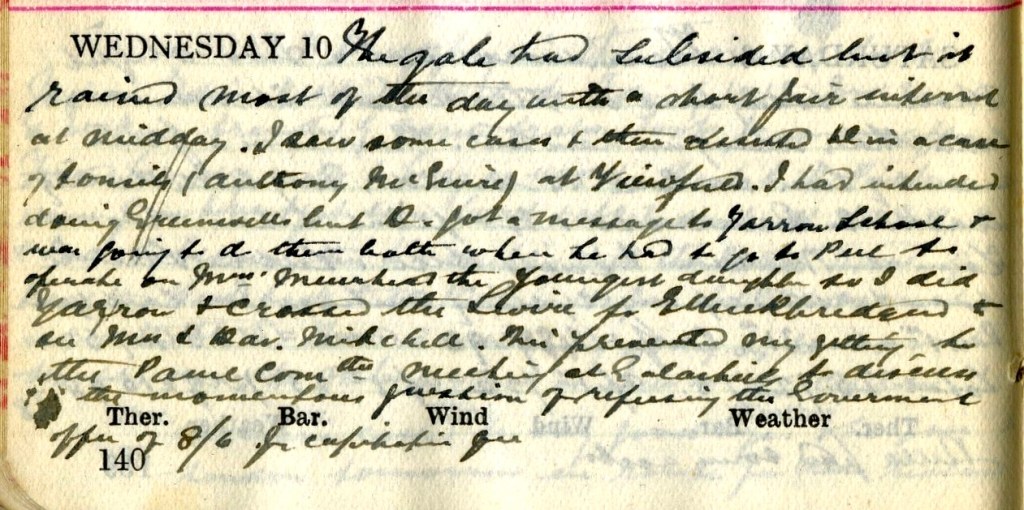 WEDNESDAY 10 The gale had subsided but it
rained most of the day with a short fair interval
at midday. I saw some cases & then assisted D in a case
of tonsils (Anthony McGuire) at Viewfield. I had intended
doing but D. got a message to Yarrow School &
was going to do them both when he had to go to Peel to
operate on Mrs Muirhead the youngest daughter so I did
Yarrow & crossed the Swire to &
see Mrs & Dav. Mitchell. This prevented my getting to
the Panel Comttee meeting at Galashiels to discuss
the momentous question of refusing the Government
Ther. Bar. Wind Weather
offer of 8/6 for capitation fee
140